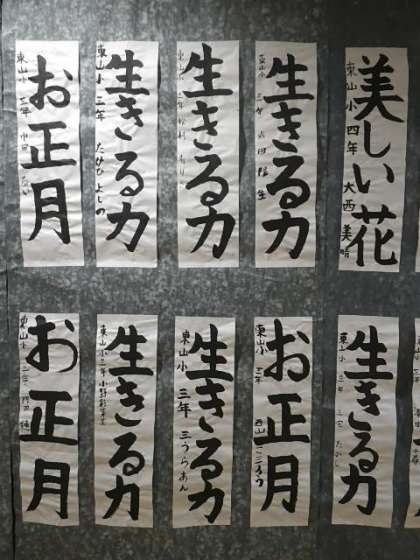 美しい花
東山小 四年 大西 美晴
生きる力
東山小 三年
生きる力
生きる力
東山小 三年 たけひ よしの
お正月
東山小 三年
生きる力
東山小 三年
お正月
東山小 三年 西山
生きる力
東山小 三年 三うらあん
生きる力
東山小 三年
お正月
東山小 三年